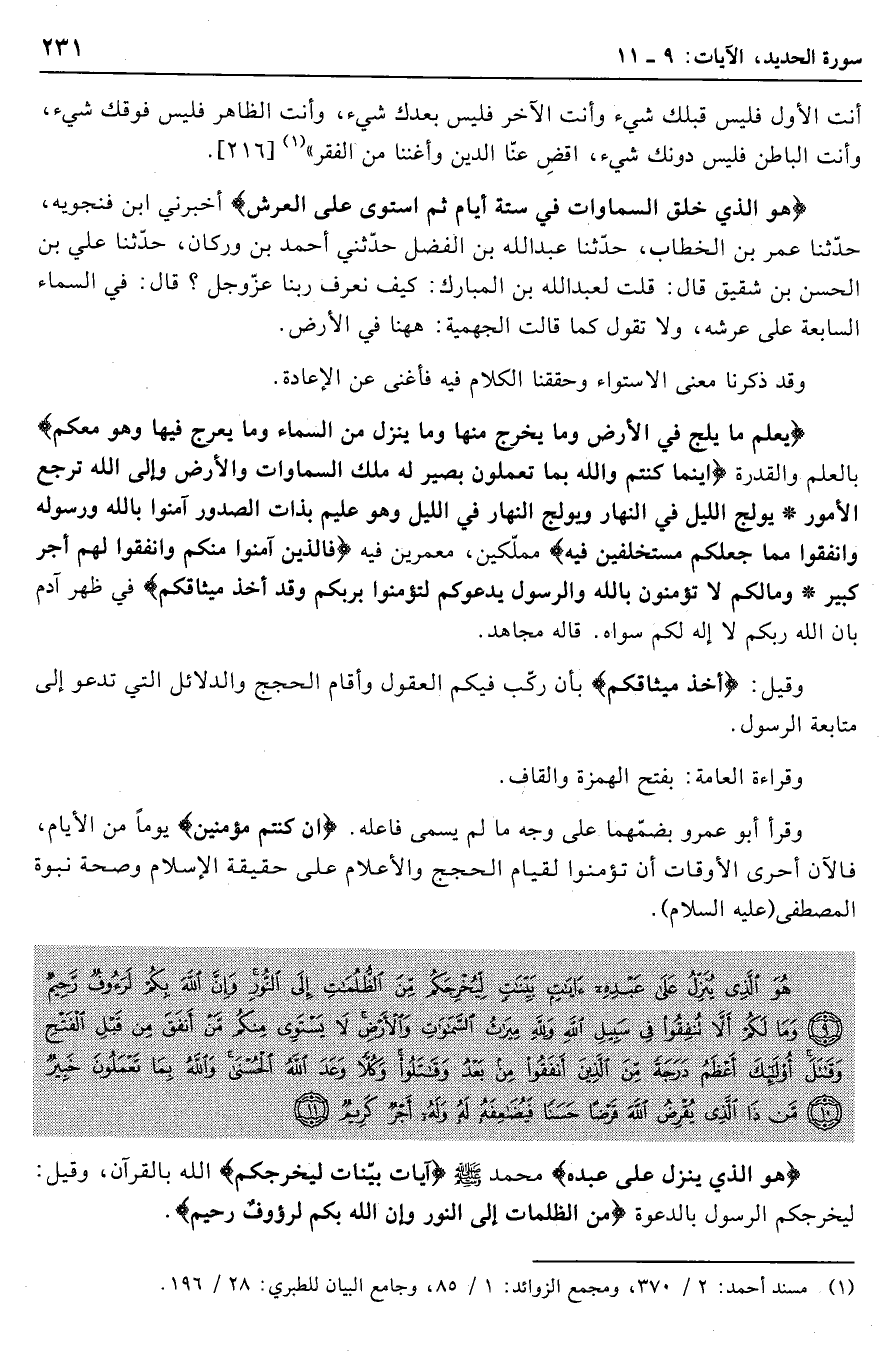 سورة الحديد، الآيات: ٩ ـ ١١ ٢٣١
أنت الأول فليس قبلك شيء وأنت الآخر فليس بعدك شيء، وأنت الظاهر فليس فوقك شيء،
وأنت الباطن فليس دونك شيء، اقضِ عنّا الدين وأغننا من الفقر»(١) [٢١٦].
﴿هو الذي خلق السماوات في ستة أيام ثم استوى على العرش﴾ أخبرني ابن فنجويه،
حدّثنا عمر بن الخطاب، حدّثنا عبدالله بن الفضل حدّثني أحمد بن وركان، حدّثنا علي بن
الحسن بن شقيق قال: قلت لعبدالله بن المبارك: كيف نعرف ربنا عزّوجل ؟ قال: في السماء
السابعة على عرشه، ولا تقول كما قالت الجهمية: ههنا في الأرض.
وقد ذكرنا معنى الاستواء وحققنا الكلام فيه فأغنى عن الإعادة.
﴿يعلم ما يلج في الأرض وما يخرج منها وما ينزل من السماء وما يعرج فيها وهو معكم﴾
بالعلم والقدرة ﴿اينما كنتم والله بما تعملون بصير له ملك السماوات والأرض وإلى الله ترجع
الأمور * يولج الليل في النهار ويولج النهار في الليل وهو عليم بذات الصدور آمنوا بالله ورسوله
وانفقوا مما جعلكم مستخلفين فيه﴾ مملّكين، معمرين فيه ﴿فالذين آمنوا منكم وانفقوا لهم أجر
كبير * ومالكم لا تؤمنون بالله والرسول يدعوكم لتؤمنوا بربكم وقد أخذ ميثاقكم﴾ في ظهر آدم
بان الله ربكم لا إله لكم سواه. قاله مجاهد.
وقيل: ﴿أخذ ميثاقكم﴾ بأن ركّب فيكم العقول وأقام الحجج والدلائل التي تدعو إلى
متابعة الرسول.
وقراءة العامة: بفتح الهمزة والقاف.
وقرأ أبو عمرو بضمّهما على وجه ما لم يسمى فاعله. ﴿ان كنتم مؤمنين﴾ يوماً من الأيام،
فالآن أحرى الأوقات أن تؤمنوا لقيام الحجج والأعلام على حقيقة الإسلام وصحة نبوة
المصطفى(عليه السلام).
هُوَ ٱلَّذِى يُنَزِّلُ عَلَىٰ عَبْدِهِۦٓ ءَايَٰتٍۭ بَيِّنَٰتٍ لِّيُخْرِجَكُم مِّنَ ٱلظُّلُمَٰتِ إِلَى ٱلنُّورِ ۚ وَإِنَّ ٱللَّهَ بِكُمْ لَرَءُوفٌ رَّحِيمٌ
﴿٩﴾ وَمَا لَكُمْ أَلَّا تُنفِقُوا۟ فِى سَبِيلِ ٱللَّهِ وَلِلَّهِ مِيرَٰثُ ٱلسَّمَٰوَٰتِ وَٱلْأَرْضِ ۚ لَا يَسْتَوِى مِنكُم مَّنْ أَنفَقَ مِن قَبْلِ ٱلْفَتْحِ
وَقَٰتَلَ ۚ أُو۟لَٰٓئِكَ أَعْظَمُ دَرَجَةً مِّنَ ٱلَّذِينَ أَنفَقُوا۟ مِنۢ بَعْدُ وَقَٰتَلُوا۟ ۚ وَكُلًّا وَعَدَ ٱللَّهُ ٱلْحُسْنَىٰ ۚ وَٱللَّهُ بِمَا تَعْمَلُونَ خَبِيرٌ
﴿١٠﴾ مَّن ذَا ٱلَّذِى يُقْرِضُ ٱللَّهَ قَرْضًا حَسَنًا فَيُضَٰعِفَهُۥ لَهُۥ وَلَهُۥٓ أَجْرٌ كَرِيمٌ ﴿١١﴾
﴿هو الذي ينزل على عبده﴾ محمد ﷺ ﴿آيات بيّنات ليخرجكم﴾ الله بالقرآن، وقيل:
ليخرجكم الرسول بالدعوة ﴿من الظلمات إلى النور وإن الله بكم لرؤوفٌ رحيم﴾.
(١) مسند أحمد: ٢ / ٣٧٠، ومجمع الزوائد: ١ / ٨٥، وجامع البيان للطبري: ٢٨ / ١٩٦.